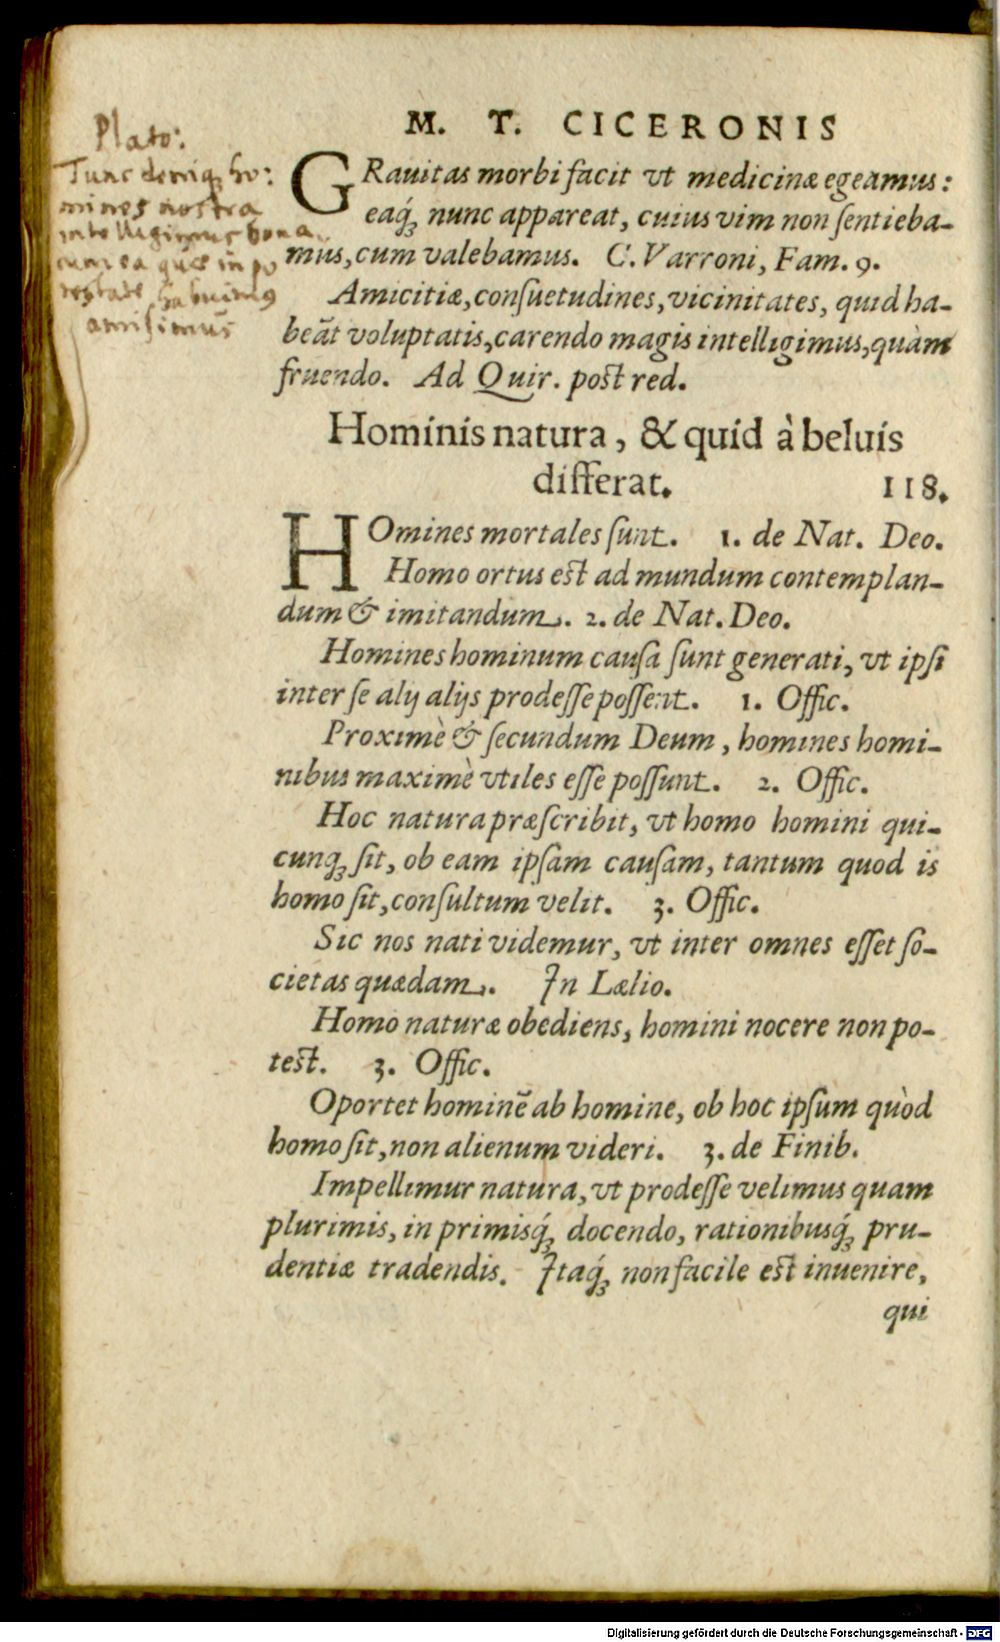 M. T. CICERONIS
Plato:
Tunc demiq; ho:
mines nostra
intelligimus bona
cum ea quæ in po
testate habuimus
amisimus
GRauitas morbi facit vt medicinæ egeamus:
eaq́; nunc appareat, cuius vim non ſentieba-
mus, cum valebamus. C. Varroni, Fam. 9.
Amicitiæ, conſuetudines, vicinitates, quid ha-
beāt voluptatis, carendo magis intelligimus, quàm
fruendo. Ad Quir. poſt red.
Hominis natura, & quid à beluis
differat. 118.
HOmines mortales ſunt. 1. de Nat. Deo.
Homo ortus eſt ad mundum contemplan-
dum & imitandum. 2. de Nat. Deo.
Homines hominum cauſa ſunt generati, vt ipſi
inter ſe alij alijs prodeſſe poſſent. 1. Offic.
Proximè & ſecundum Deum, homines homi-
nibus maximè vtiles eſſe poſſunt. 2. Offic.
Hoc natura præſcribit, vt homo homini qui-
cunq; ſit, ob eam ipſam cauſam, tantum quod is
homo ſit, conſultum velit. 3. Offic.
Sic nos nati videmur, vt inter omnes eſſet ſo-
cietas quædam. In Lælio.
Homo naturæ obediens, homini nocere non po-
teſt. 3. Offic.
Oportet hominē ab homine, ob hoc ipſum quòd
homo ſit, non alienum videri. 3. de Finib.
Impellimur natura, vt prodeſſe velimus quam
plurimis, in primisq́; docendo, rationibusq́; pru-
dentiæ tradendis. Itaq́; non facile eſt inuenire,
qui
Digitalisierung gefördert durch die Deutsche Forschungsgemeinschaft - DFG